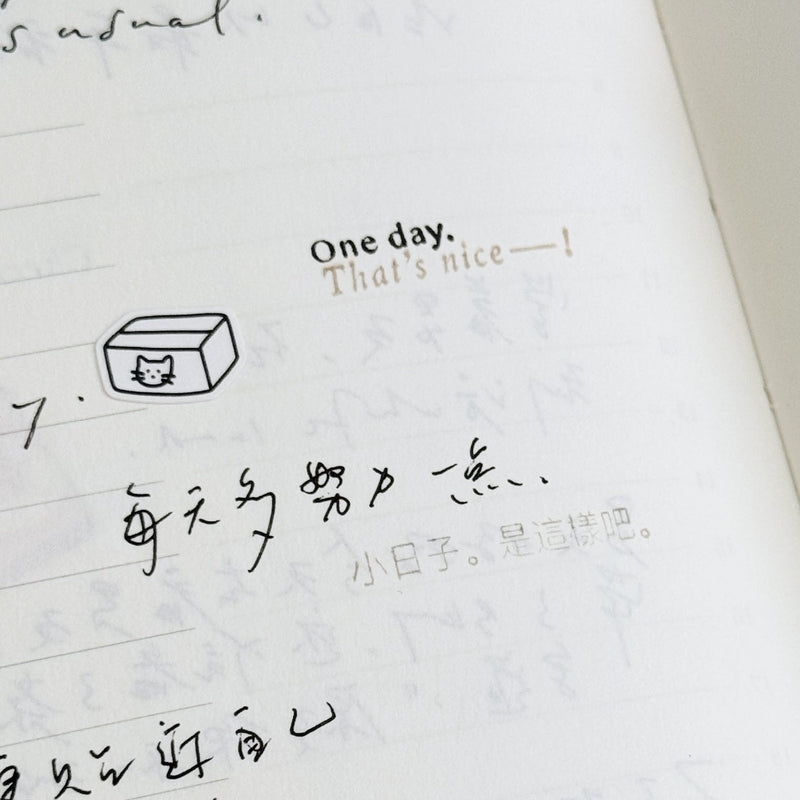 s usual.
One day.
That's nice—!
7.
每天多努力一点、
小日子。是這樣吧。
近自己